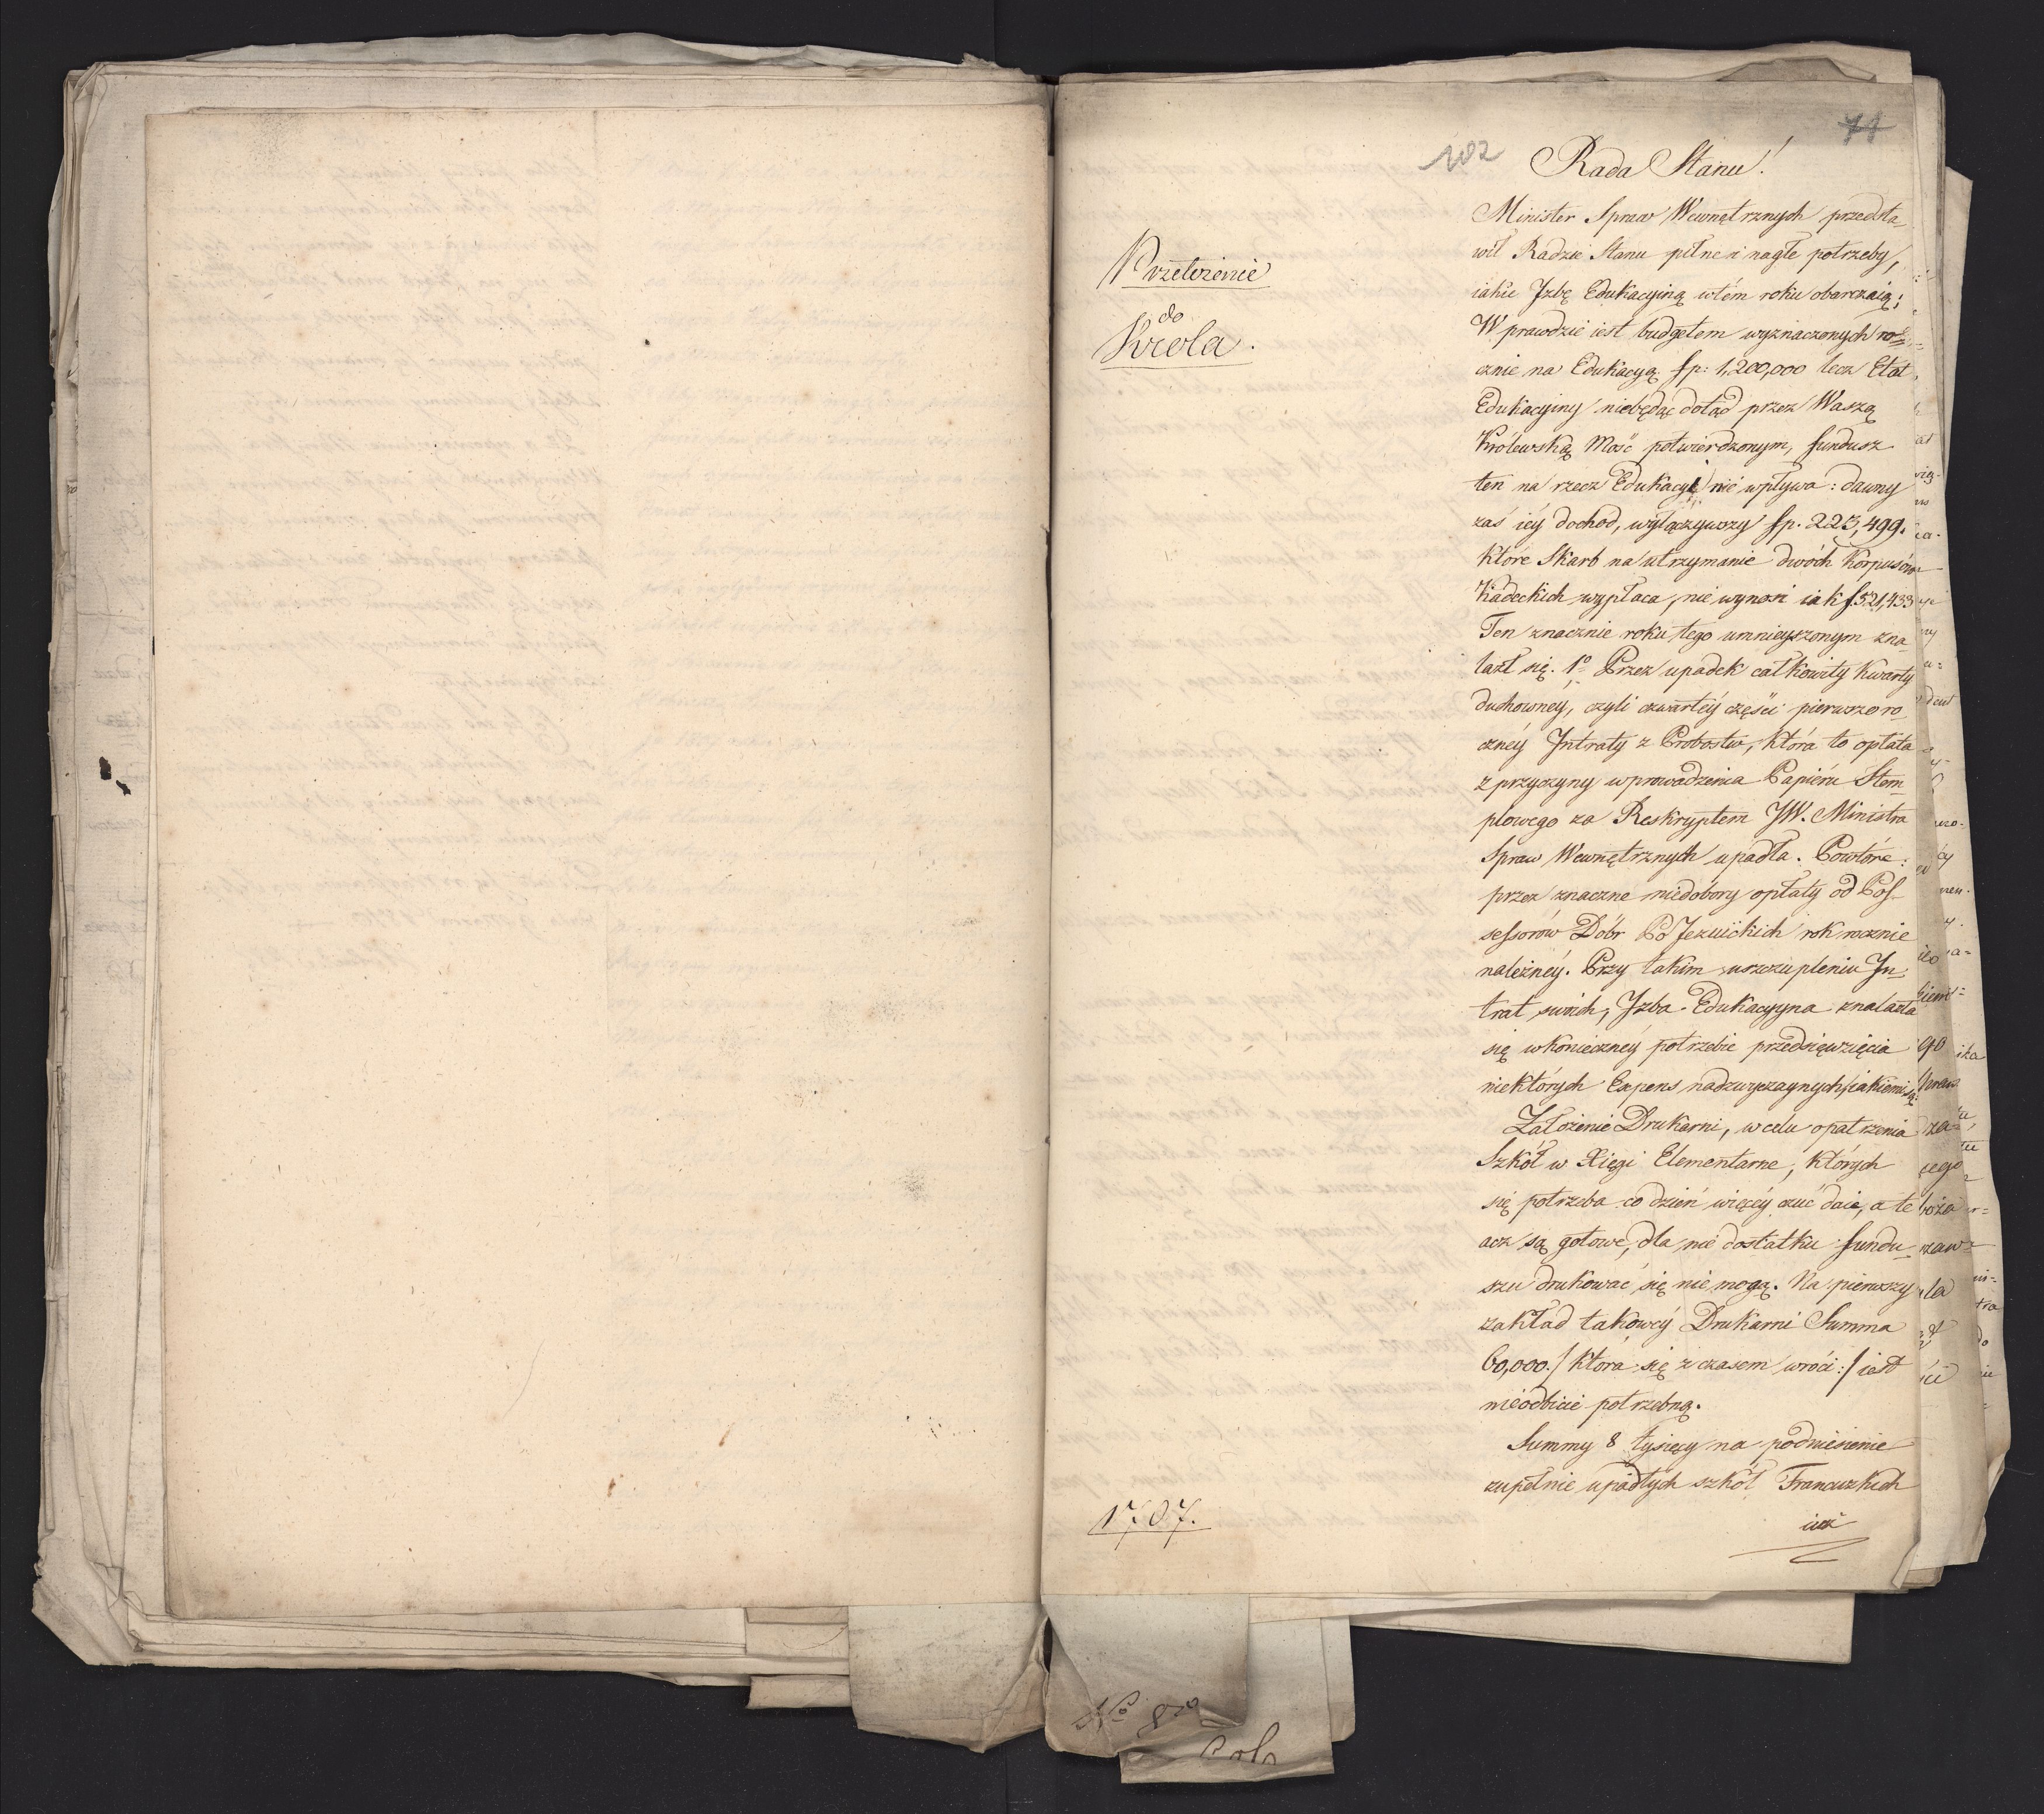 102
71
Rada Stanu!
Przełożenie
do
Krola.
Minister Spraw Wewnętrznych przedsta-
wił Radzie Stanu pilne i nagłe potrzeby,
iakie Jzbę Edukacyiną wtém roku obarczaią;
Wprawdzie iest budgetem wyznaczonych ro-
cznie na Edukacyą fp: 1,200,000 lecz Etat
Edukacyiny niebędąc dotąd przez Waszą
Królewską Mość potwierdzonym, fundusz
ten na rzecz Edukacyi nie wpływa: dawny
zaś iéy dochod, wyłączywszy fp. 223,499.
które Skarb na utrzymanie dwóch Korpusów
Kadeckich wypłaca, nie wynosi iak f. 521,433
Ten znacznie roku tego umnieyszonym zna-
lazł się. 1º Przez upadek całkowity Kwarty
duchownéy, czyli czwartéy części pierwszoro-
cznéy Jntraty z Probostw, która to opłata
z przyczyny wprowadzenia Papiéru Stem-
plowego za Reskryptem JW. Ministra
Spraw Wewnętrznych upadła. Powtóre:
przez znaczne niedobory opłaty od Pos-
sessorów Dóbr PoJezuickich rok rocznie
należnéy. Przy takim uszczupleniu Jn-
trat swoich, Jzba Edukacyyna znalazła
się wkoniecznéy potrzebie przedsięwzięcia
niektórych Expens nadzwyczaynych, iakiemi są:
Założenie Drukarni, wcelu opatrzenia
Szkół w Xięgi Elementarne, których
się potrzeba co dzień więcéy czuć daie, a te
acz są gotowe, dla nie dostatku fundu-
szu drukować się nie mogą. Na pierwszy
zakład takowéy Drukarni Summa
60,000./ która się z czasem wróci:/ iest
nieodbicie potrzebną.
Summy 8 tysięcy na podniesienie
zupełnie upadłych szkół Francuzkich
iuż
1707.
No 8